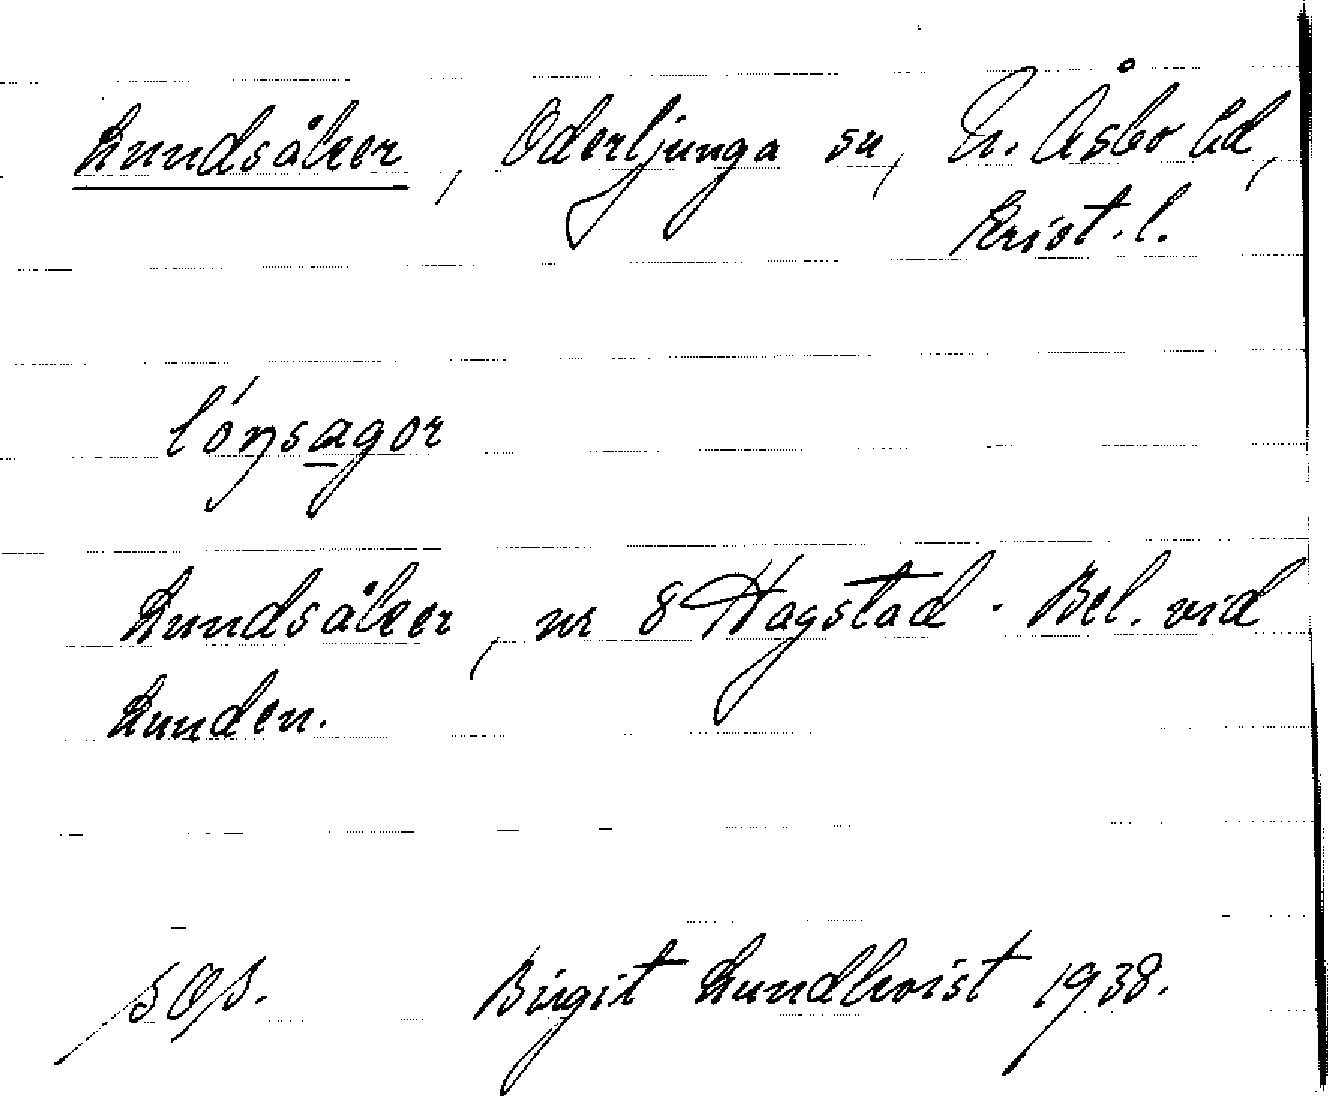 Lundsåker, Oderljunga sn, N. Åsbo hd,
Krist. l.
lónsagor
Lundsåker, nr 8 Hagstad. Bel. vid
Lunden.
Birgit Lundkvist 1938.